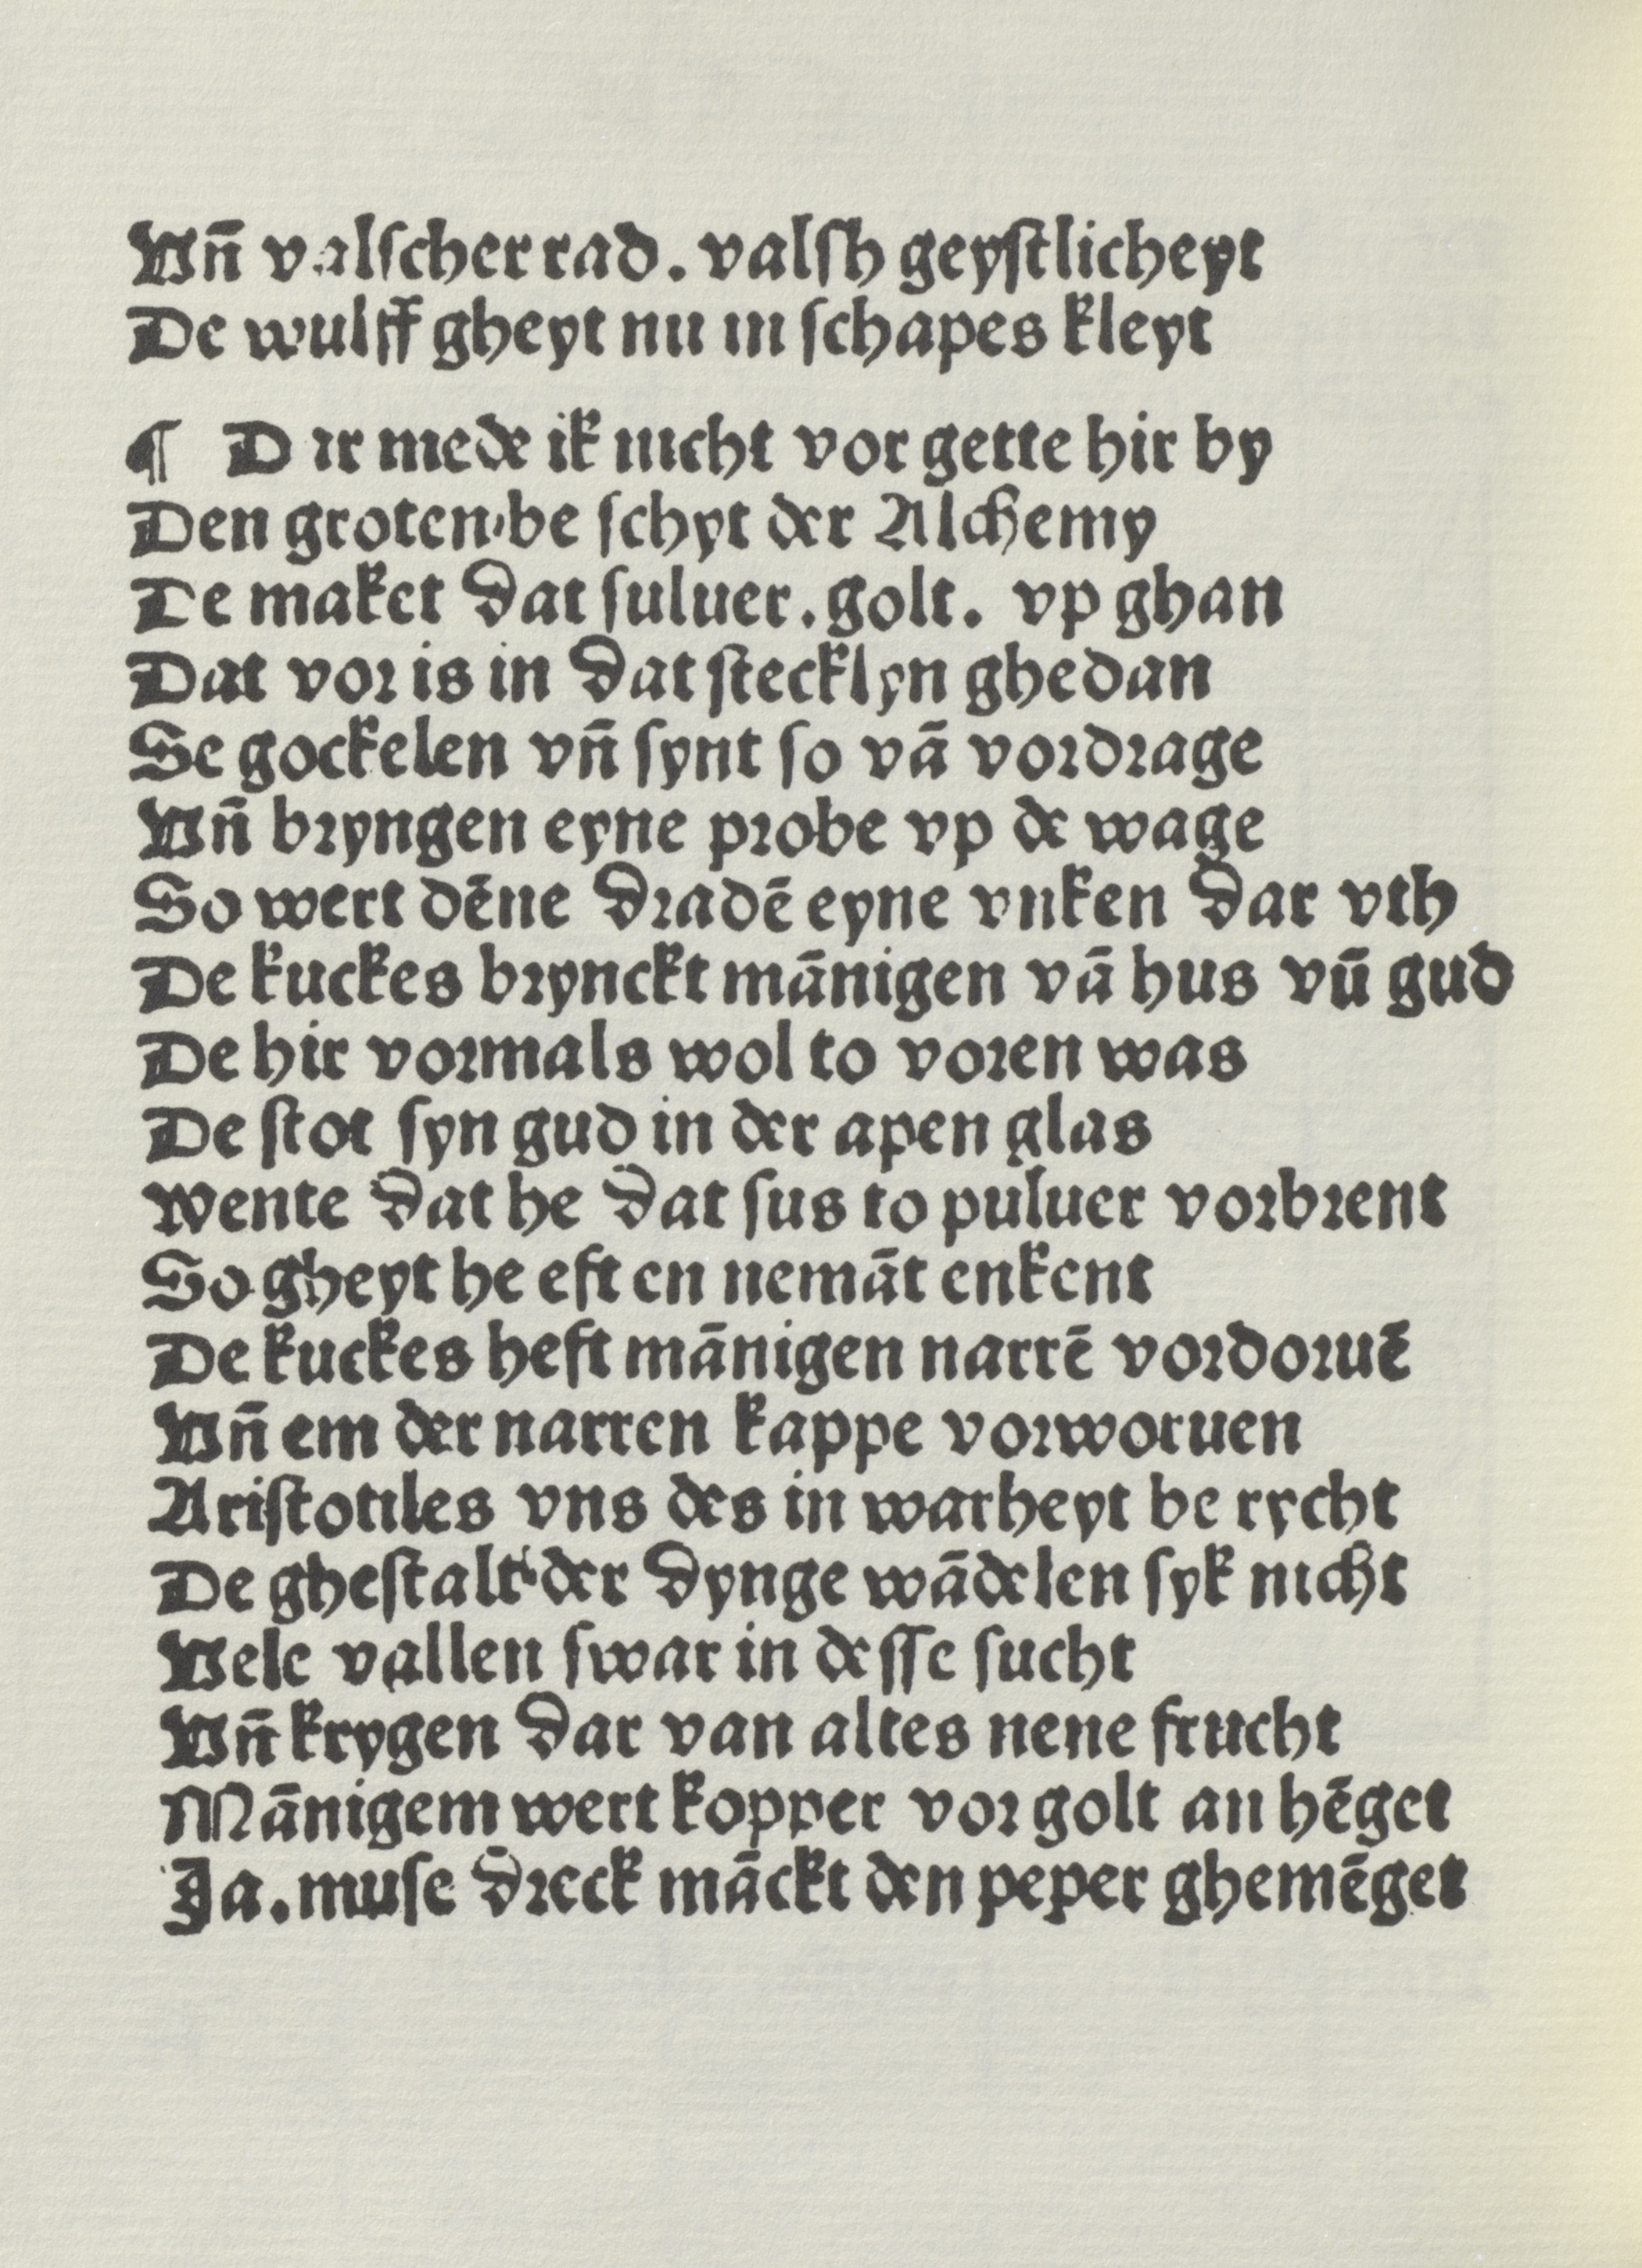 Vñ valſcher rad. valſh geyſtlicheyt
De wulff gheyt nu in ſchapes kleyt
¶ D ar mede ik nicht vor gette hir by
Den groten be ſchyt der Alchemy
De maket dat ſuluer. golt. vp ghan
Dat vor is in dat ſtecklyn ghedan
Se gockelen vñ ſynt ſo vā vordrage
Vñ bryngen eyne probe vp de wage
So wert dēne dradē eyne vnken dar vth
De kuckes brynckt mānigen vā hus vñ gud
De hir vormals wol to voren was
De ſtot ſyn gud in der apen glas
wente dat he dat ſus to puluer vorbrent
So gheyt he eft en nemāt enkent
De kuckes heft mānigen narrē vordoruē
Vñ em der narren kappe vorworuen
Ariſtotiles vns des in warheyt be rycht
De gheſtalt der dynge wādelen ſyk nicht
Vele vallen ſwar in deſſe ſucht
Vñ krygen dar van altes nene frucht
Mānigem wert kopper vor golt an hēget
Ja. muſe dreck māckt den peper ghemēget